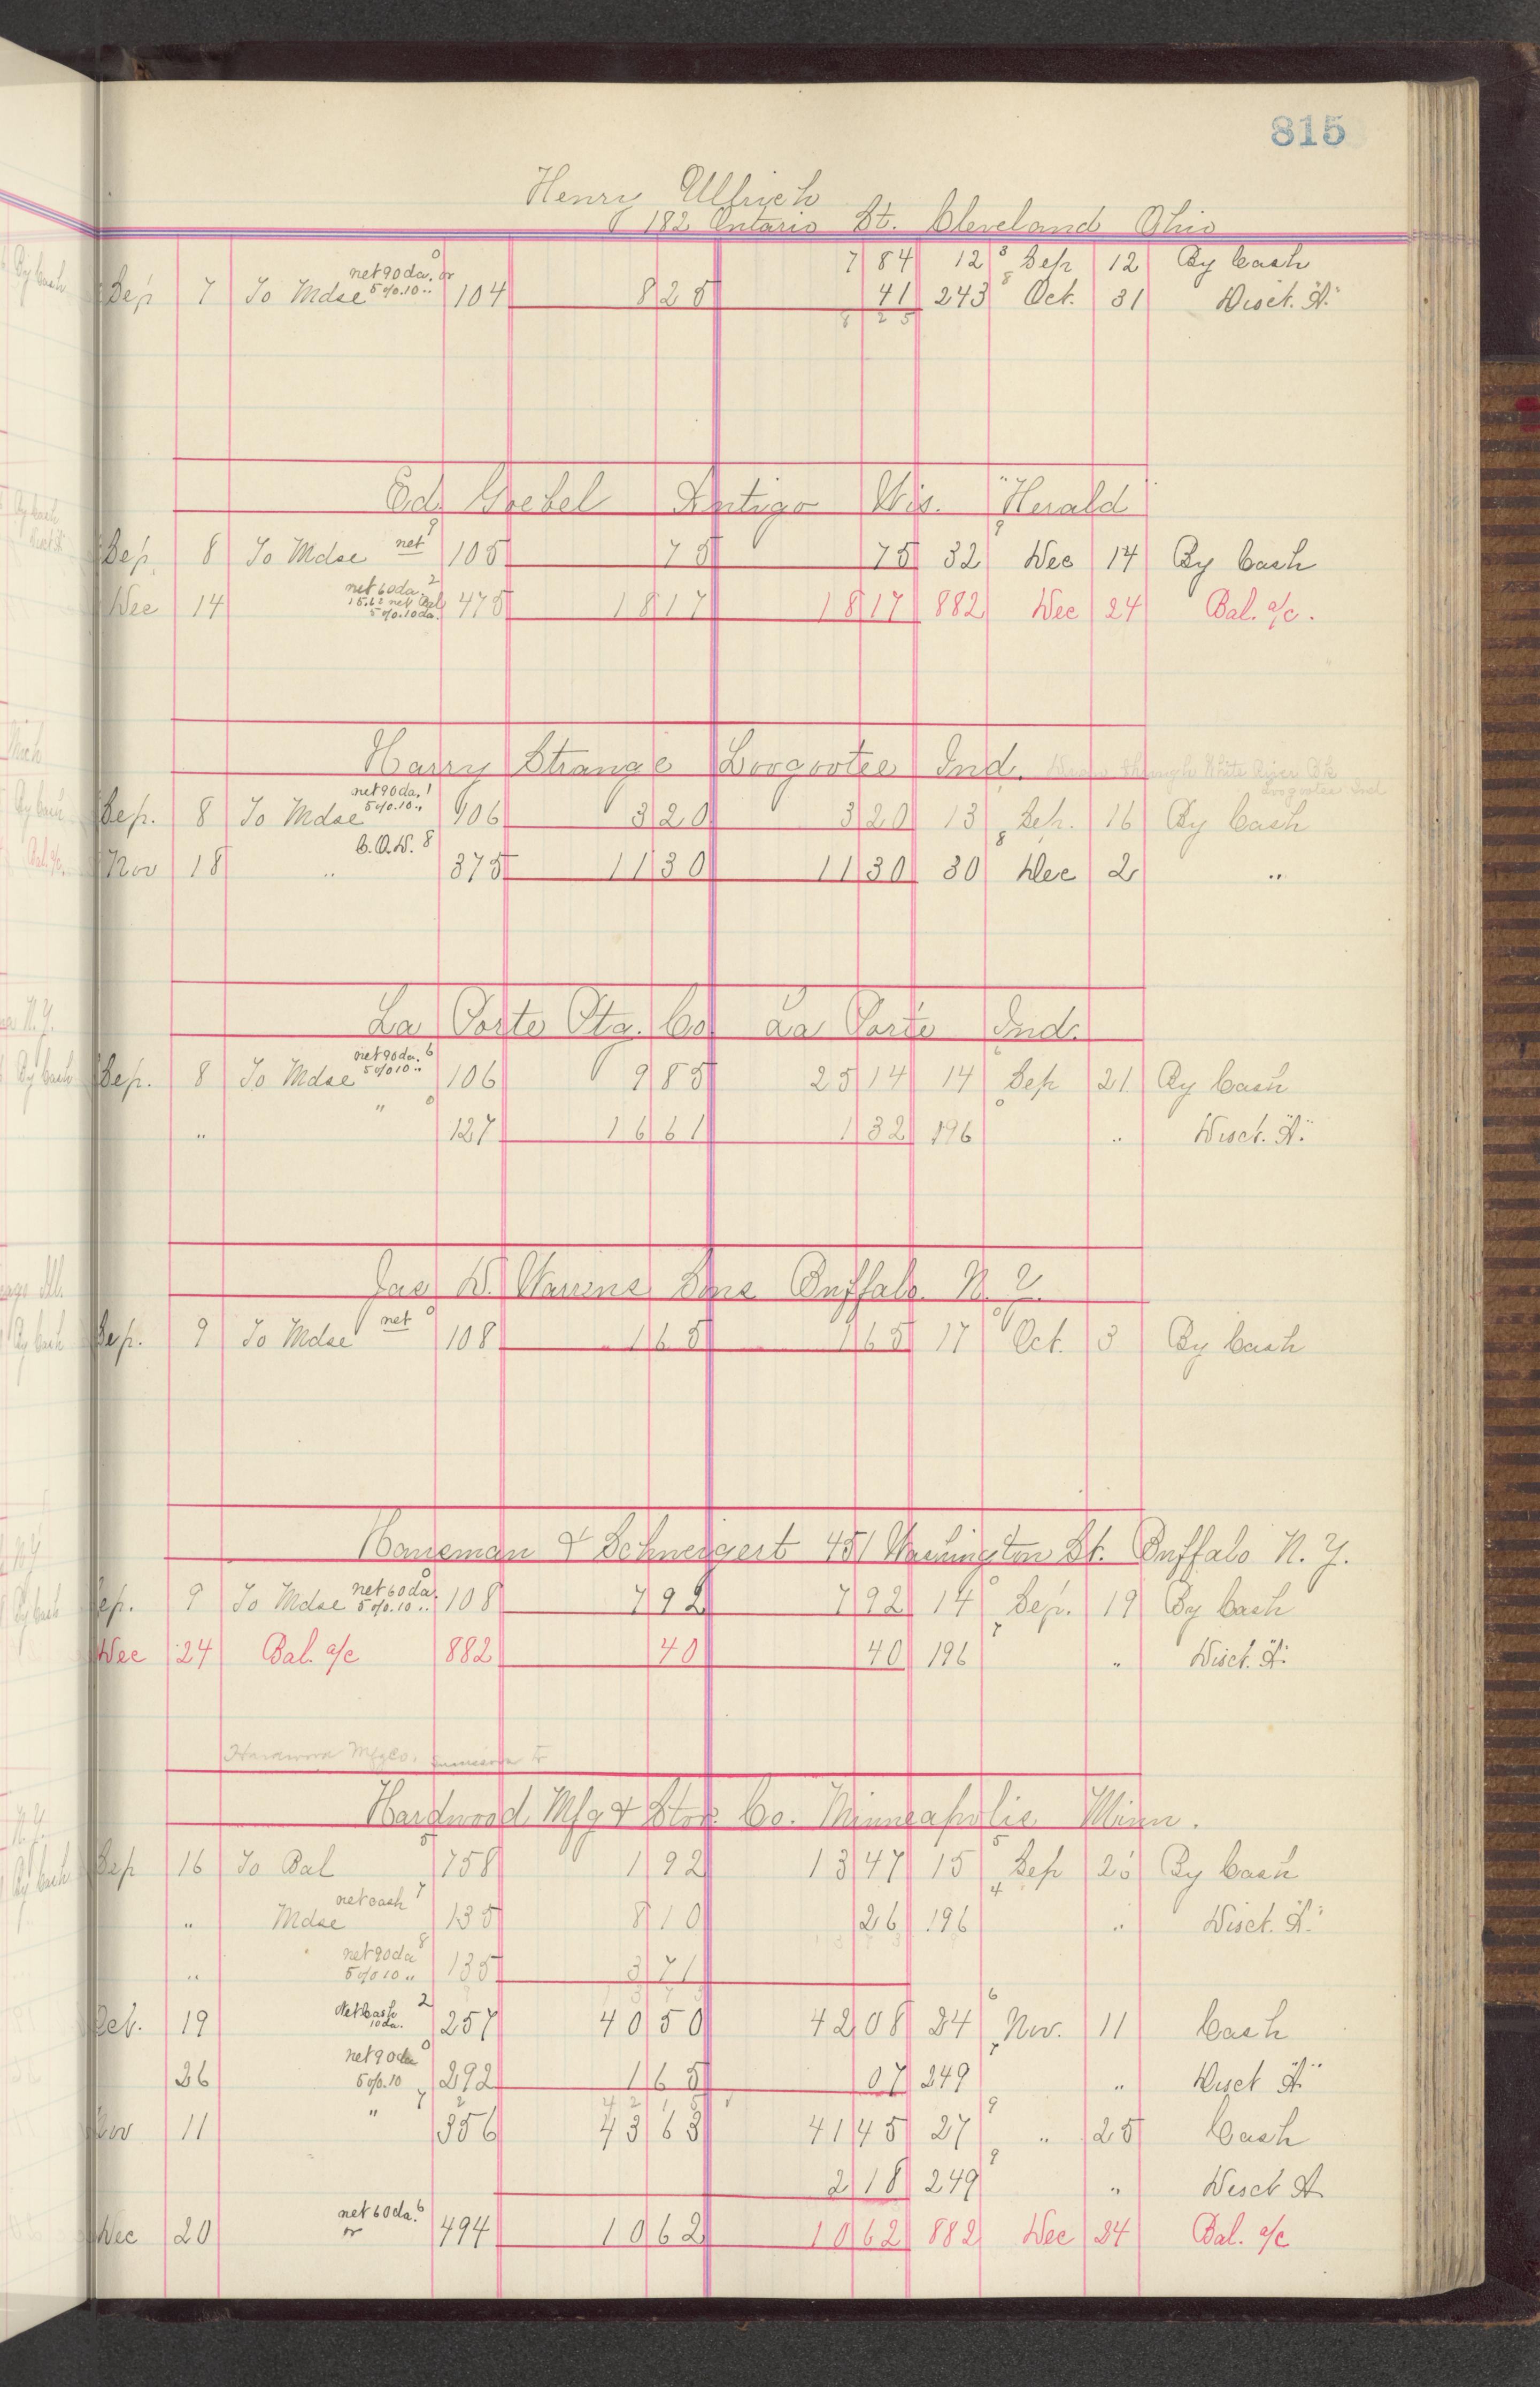 815
Henry Ullrich
182 Ontario St. Cleveland Ohio
7 84 12 3 Sep 12 By Cash
Sep 7 To Mdse net 90 da. or 5 o/o. 10 .. 0 104 8 25 41 243 8 Oct. 31 Disct. "A"
8 25
Ed. Goebel Antigo Wis. "Herald"
Sep. 8 To Mdse net 9 105 75 75 32 9 Dec 14 By Cash
Dec 14 net 60 da. 2 475 18 17 18 17 882 Dec 24 Bal. a/c.
5 o/o. 10 da.
Harry Strange Loogootee Ind.
Loogootee Ind
Sep. 8 To Mdse net 90 da. 5 o/o. 10 .. 1 106 3 20 3 20 13 Sep. 16 By Cash
Nov 18 " C.O.D. 8 375 11 30 11 30 30 8 Dec 2 "
La Porte Ptg. Co La Porte Ind.
Sep. 8 To Mdse net 90 da. 5 o/o 10 .. 6 106 9 85 25 14 14 Sep 21 By Cash
" " 0 127 16 61 1 32 196 0 " Disct. "A"
Jas D. Warrens Sons Buffalo N. Y.
Sep. 9 To Mdse net 0 108 1 65 1 65 17 0 Oct. 3 By Cash
Hanseman & Schneigert 451 Washington St. Buffalo N. Y.
Sep. 9 To Mdse net 60 da. 5 o/o. 10 .. 0 108 7 92 7 92 14 0 Sep. 19 By Cash
Dec 24 Bal. a/c 882 40 40 196 7 " Disct. "A"
Hardwood Mfg Co.
Hardwood Mfg & Stor. Co. Minneapolis Minn.
Sep 16 To Bal 5 758 1 92 13 47 15 5 Sep 26 By Cash
" Mdse net cash 7 135 8 10 26 196 4 " Disct. "A"
" net 90 da 5 o/o 10 .. 8 135 3 71
Oct. 19 Net Cash 10 da. 2 257 40 50 42 08 24 6 Nov. 11 Cash
26 net 90 da 5 o/o. 10 0 292 1 65 07 249 7 " Disct "A"
42 15
Nov 11 " 7 356 43 63 41 45 27 9 " 25 Cash
2 18 249 9 " Disct A
Dec 20 net 60 da. or 6 494 10 62 10 62 882 Dec 24 Bal. a/c